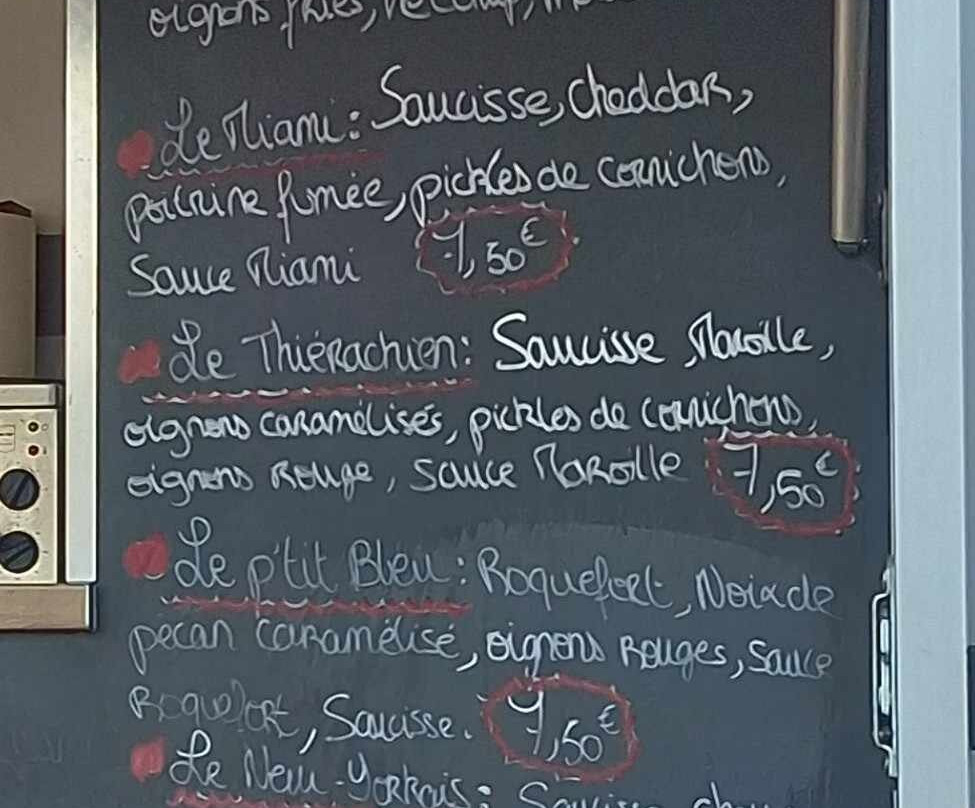 oignons frites, ketchup,
Le Miami : Saucisse, Cheddar,
poitrine fumée, pickles de cornichons,
Sauce Miami 7,50€
Le Thiérachien : Saucisse, Maroille,
oignons caramélisés, pickles de cornichons,
oignons Rouge, sauce Maroille 7,50€
Le p'tit Bleu : Roquefort, Noix de
pecan caramélisé, oignons Rouges, sauce
Roquefort, Saucisse. 7,50€
Le New-Yorkais : Saucisse